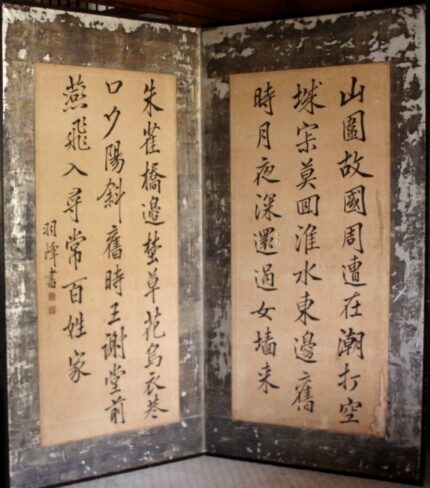 山圍故國周遭在潮打空
城寂莫回淮水東邊舊
時月夜深還過女墻来
朱雀橋邊埜草花烏衣巷
口夕陽斜舊時王謝堂前
燕飛入尋常百姓家
羽峰書